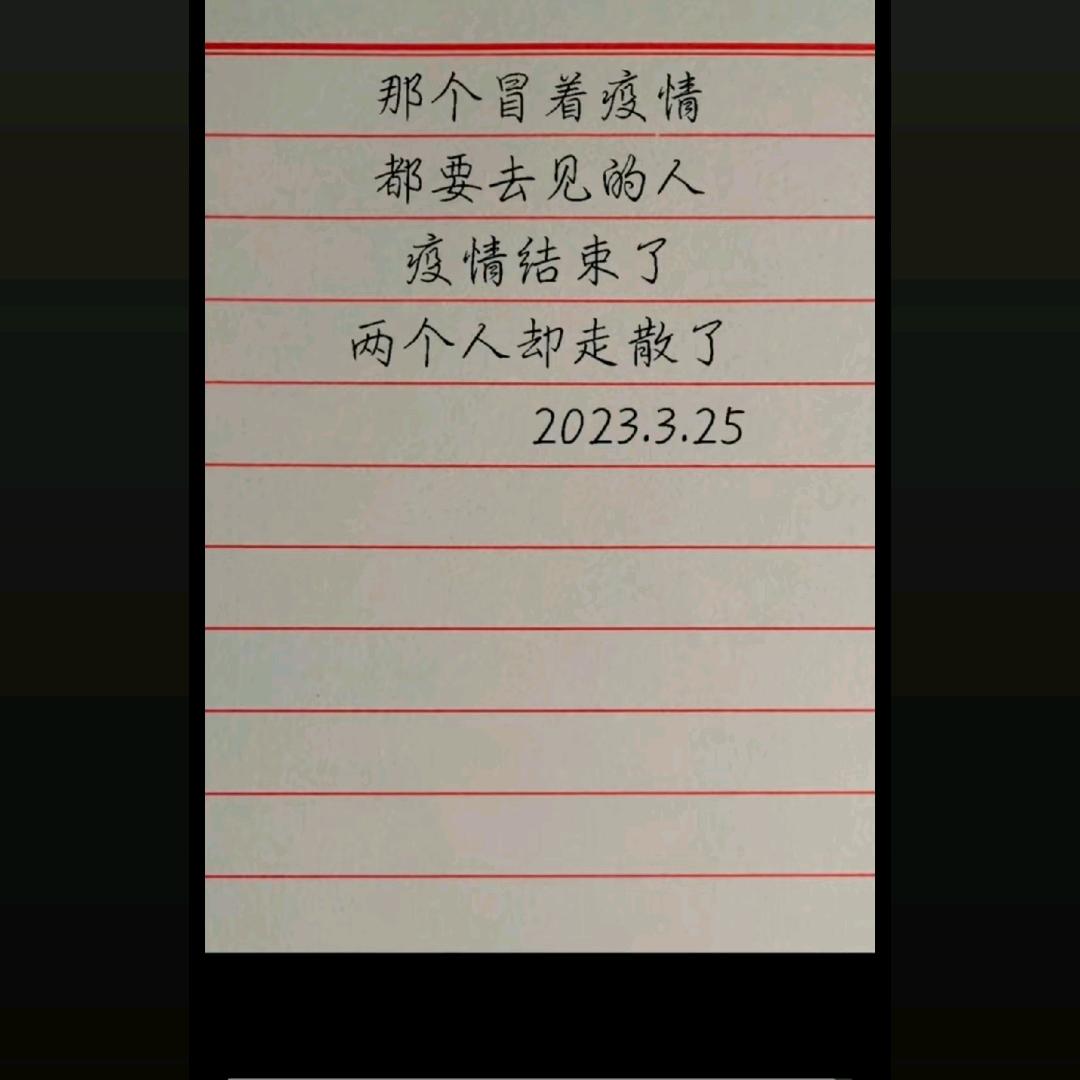 那个冒着疫情
都要去见的人
疫情结束了
两个人却走散了
2023.3.25